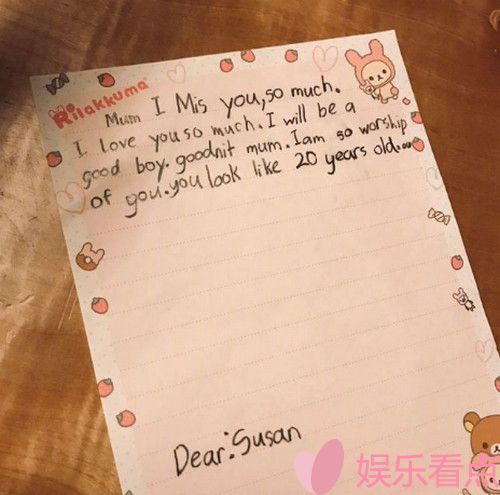 Rilakkuma
Mum I Mis you,so much.
I love you so much.I will be a
good boy.goodnit mum.I am so worship
of you.you look like 20 years old...
Dear:Susan
娱乐看点